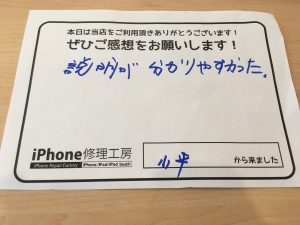 本日は当店をご利用頂きありがとうございます!
ぜひご感想をお願いします!
説明が分かりやすかった。
iPhone修理工房
iPhone Repair Factory iPhone/iPad/iPod touch
小平 から来ました